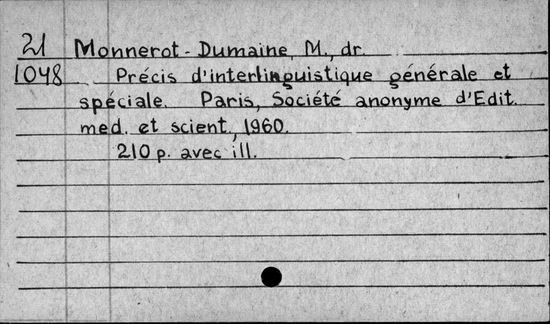 21 Monnerot-Dumaine, M., dr.
1048 Précis d'interlinguistique générale et
spéciale. Paris, Société anonyme d'Edit.
med. et scient., 1960.
210 p. avec ill.